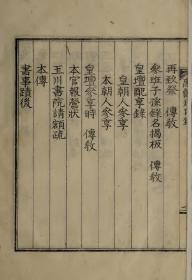 再致祭 傳敎
參班子孫錄名揭板 傳敎
皇壇配享錄
皇朝人參享
本朝人參享
皇壇參享時 傳敎
本官報營狀
玉川書院請額疏
本傳
書事蹟後